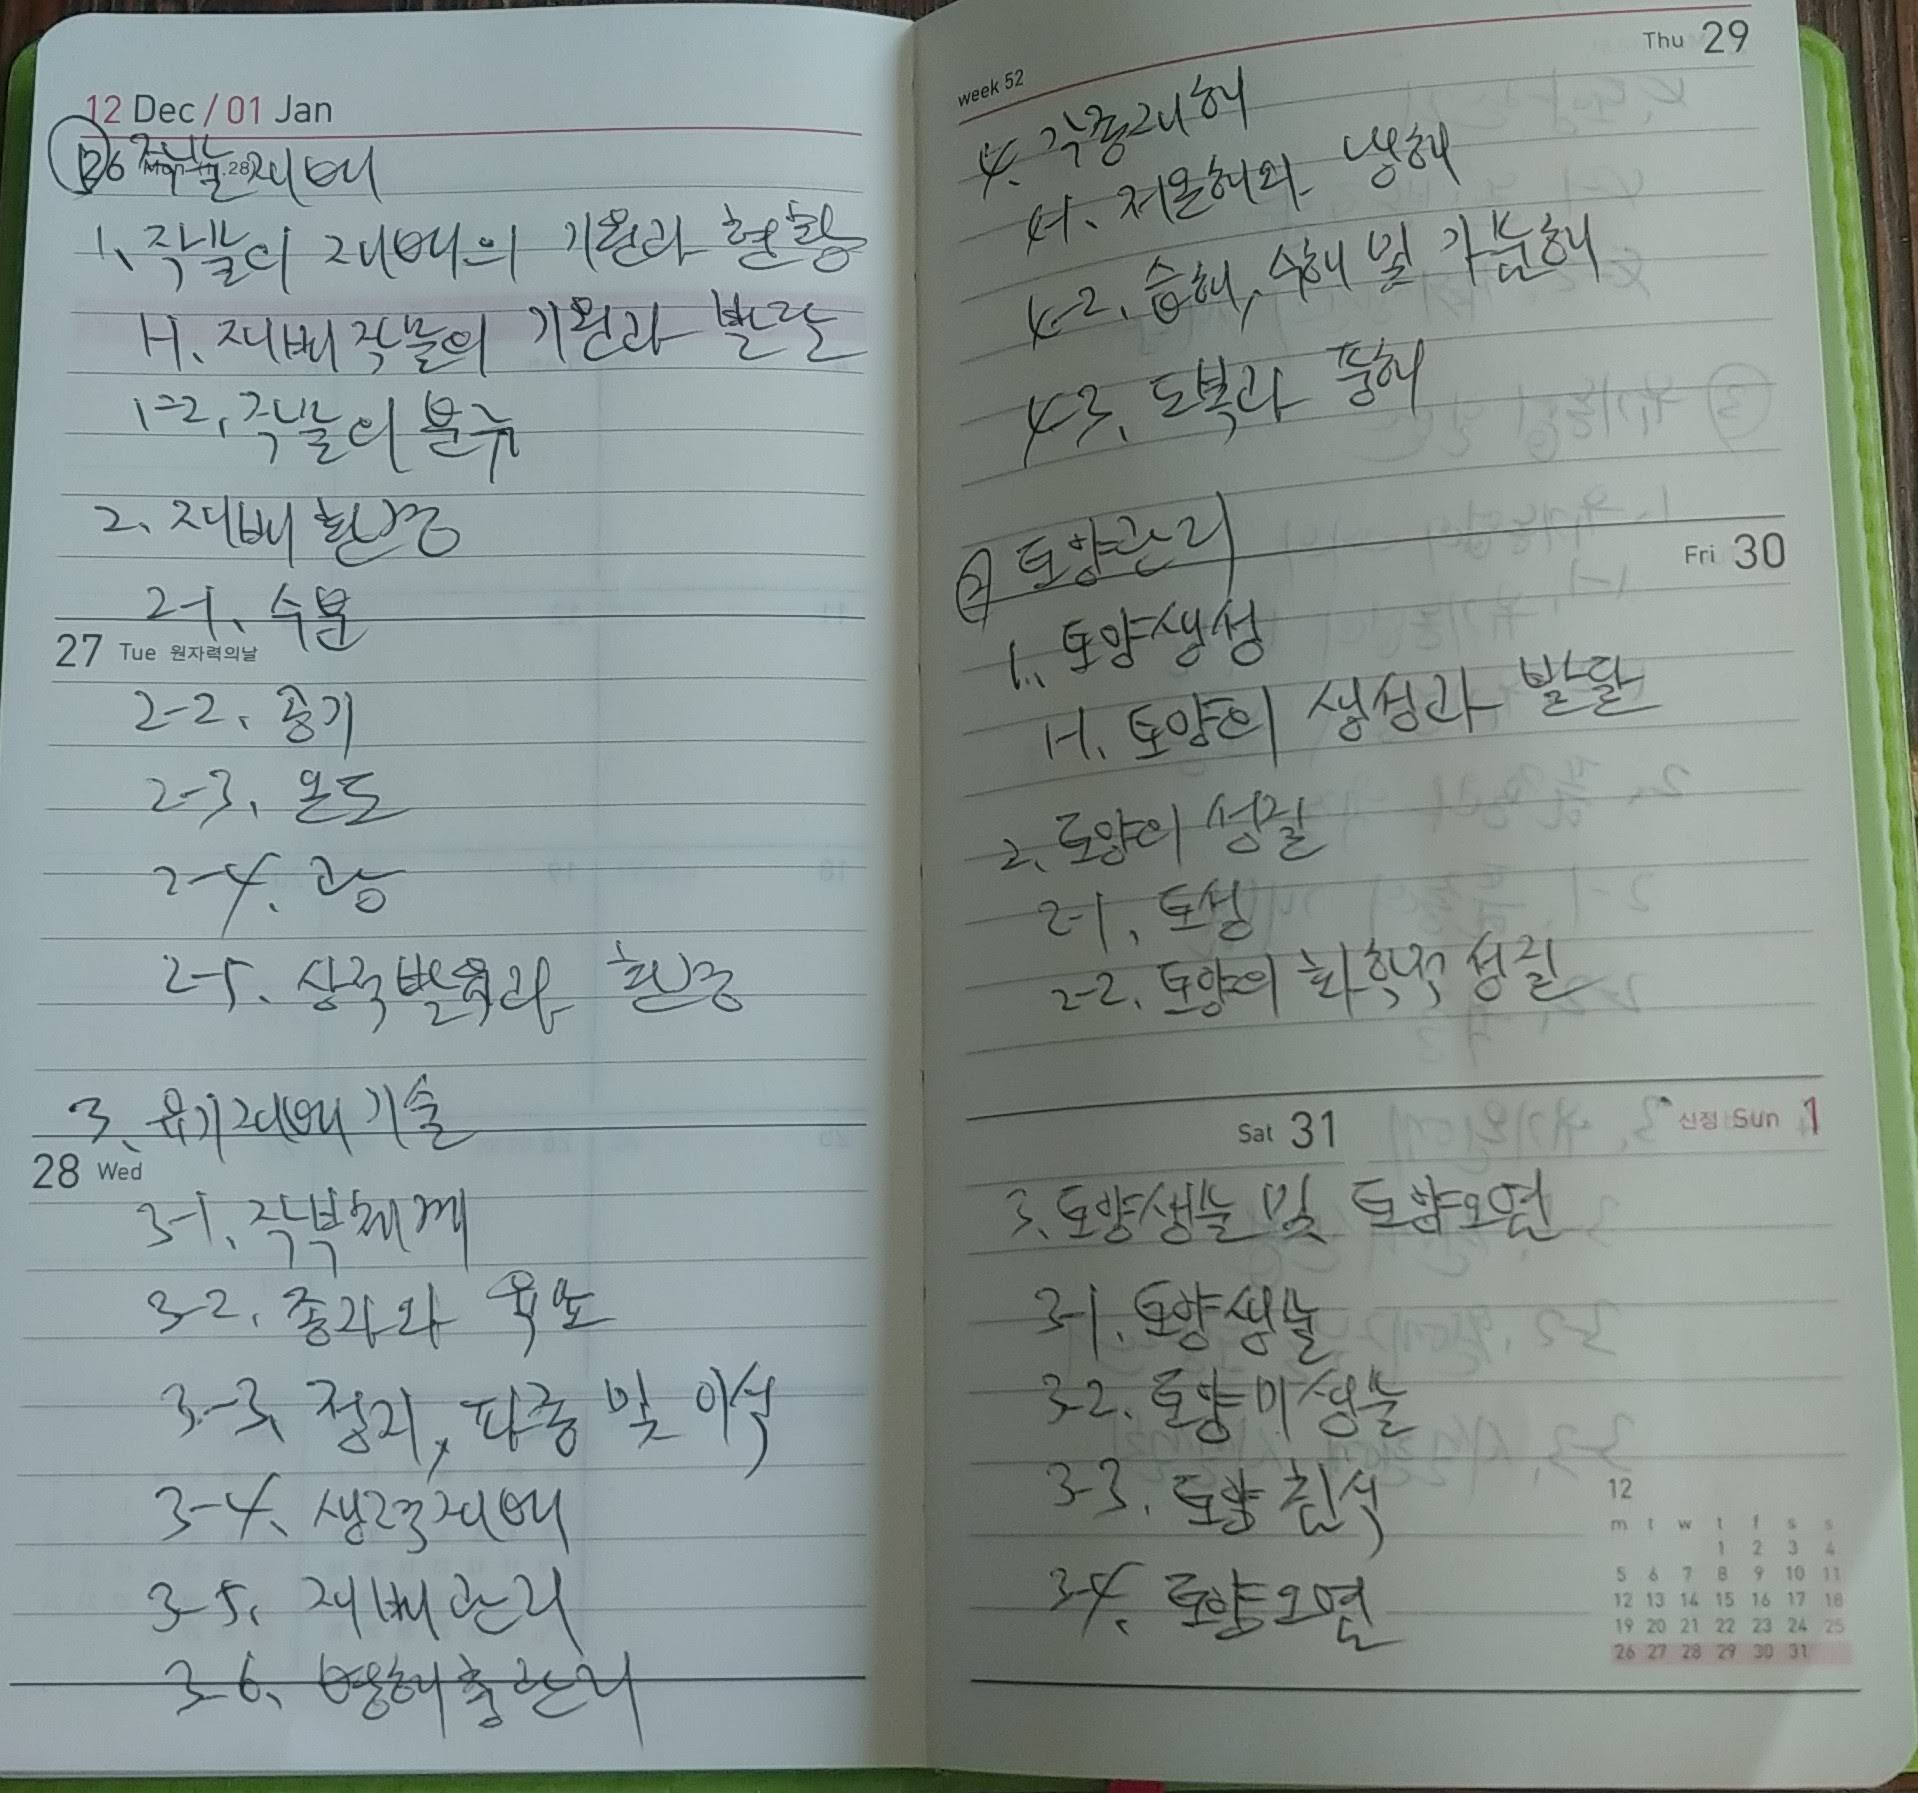 12 Dec / 01 Jan
① 작물재배
26 Mon
1. 작물의 재배의 기원과 현황
1-1. 재배작물의 기원과 발달
1-2. 작물의 분류
2. 재배환경
2-1. 수분
27 Tue 원자력의날
2-2. 공기
2-3. 온도
2-4. 광
2-5. 상적발육과 환경
3. 유기재배기술
28 Wed
3-1. 작부체계
3-2. 종자와 육묘
3-3. 정지, 파종 및 이식
3-4. 생력재배
3-5. 재배관리
3-6. 병해충관리
week 52
Thu 29
4. 각종재해
4-1. 저온해와 냉해
4-2. 습해, 수해 및 가뭄해
4-3. 도복과 풍해
② 토양관리
Fri 30
1. 토양생성
1-1. 토양의 생성과 발달
2. 토양의 성질
2-1. 토성
2-2. 토양의 화학적 성질
Sat 31
신정 Sun 1
3. 토양생물 및 토양오염
3-1. 토양생물
3-2. 토양미생물
3-3. 토양침식
3-4. 토양오염
12
m t w t f s s
1 2 3 4
5 6 7 8 9 10 11
12 13 14 15 16 17 18
19 20 21 22 23 24 25
26 27 28 29 30 31